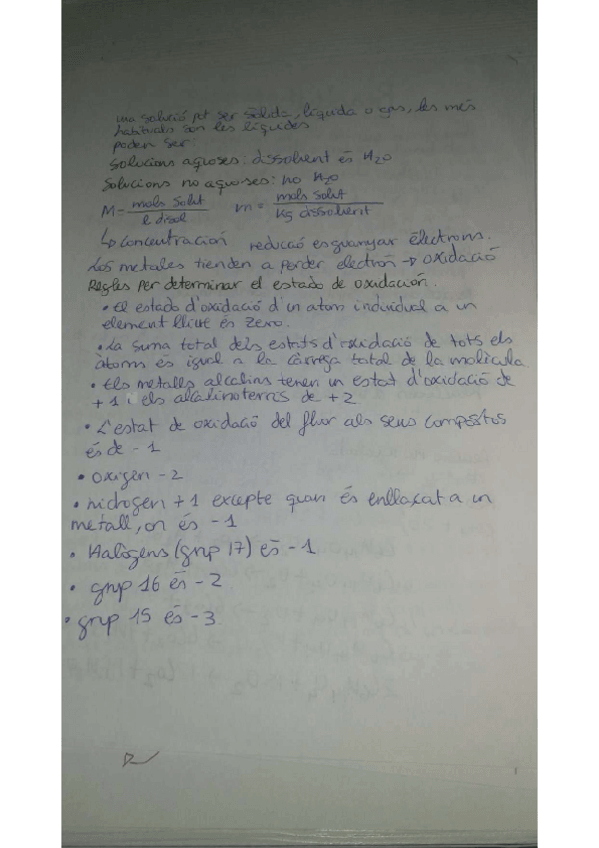 una solució pot ser sòlida, líquida o gas, les més
habituals són les líquides
poden ser:
Solucions aquoses: dissolvent és H₂O
Solucions no aquoses: no H₂O
M = mols solut / l disol m = mols solut / kg dissolvent
↳ Concentración reducció es guanyar électrons.
Los metales tienden a perder electrón → oxidació
Regles per determinar el estado de oxidación.
• El estado d'oxidació d'un atom individual a un
element lliure és zero.
• La suma total dels estats d'oxidació de tots els
àtoms és igual a la càrrega total de la molècula
• Els metalls alcalins tenen un estat d'oxidació de
+1 i els alcalinoterris de +2
• L'estat de oxidació del fluor als seus compostos
és de -1
• oxigen -2
• hidrogen +1 excepte quan és enllaçat a un
metall, on és -1
• Halògens (grup 17) és -1
• grup 16 és -2
• grup 15 és -3